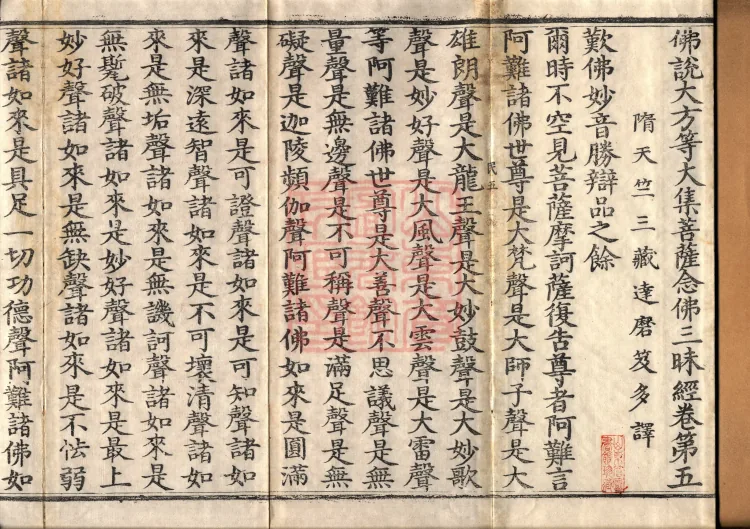 佛說大方等大集菩薩念佛三昧經卷第五
隋天竺三藏達磨笈多譯
歎佛妙音勝辯品之餘
爾時不空見菩薩摩訶薩復告尊者阿難言
阿難諸佛世尊是大梵聲是大師子聲是大
雄朗聲是大龍王聲是大妙鼓聲是大妙歌
聲是妙好聲是大風聲是大雲聲是大雷聲
等阿難諸佛世尊是大善聲不思議聲是無
量聲是無邊聲是不可稱聲是滿足聲是無
礙聲是迦陵頻伽聲阿難諸佛如來是圓滿
聲諸如來是可證聲諸如來是可知聲諸如
來是深遠智聲諸如來是不可壞清聲諸如
來是無垢聲諸如來是無譏訶聲諸如來是
無髡破聲諸如來是妙好聲諸如來是最上
妙好聲諸如來是無缺聲諸如來是不怯弱
聲諸如來是具足一切功德聲阿難諸佛如